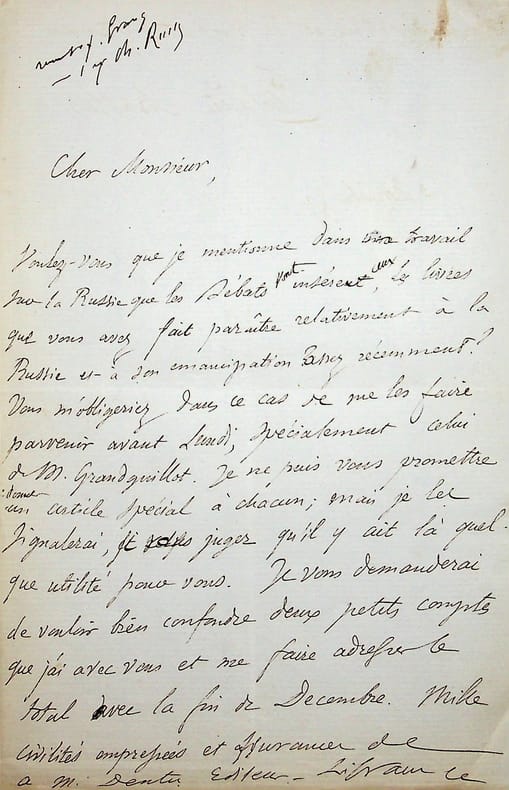 Cher Monsieur,
Voulez-vous que je mentionne dans un travail
sur la Russie que les Débats vont insérer, ceux des livres
que vous avez fait paraître relativement à la
Russie et à son emancipation assez récemment?
Vous m'obligeriez dans ce cas de me les faire
parvenir avant Lundi, spécialement celui
de M. Grandguillot. Je ne puis vous promettre
donner
un article spécial à chacun; mais je les
signalerai, si vous jugez qu'il y ait là quel-
que utilité pour vous. Je vous demanderai
de vouloir bien confondre deux petits comptes
que j'ai avec vous et me faire adresser le
total avec la fin de Decembre. Mille
civilités empressées et assurances de
a M. Dentu Editeur.